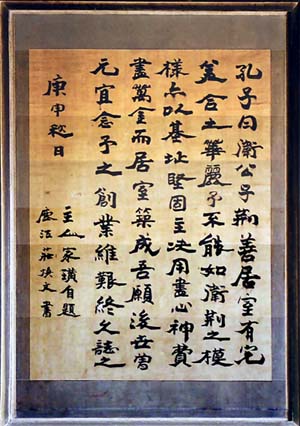 孔子曰衛公子荊善居室有完
美合之華麗予不能如衛荊之模
樣亦以基址堅固主決用盡心神費
盡萬金而居室築成吾願後世曾
元宜念予之創業維艱終久誌之
庚申秋日
主人家讚自題
莊挾文書